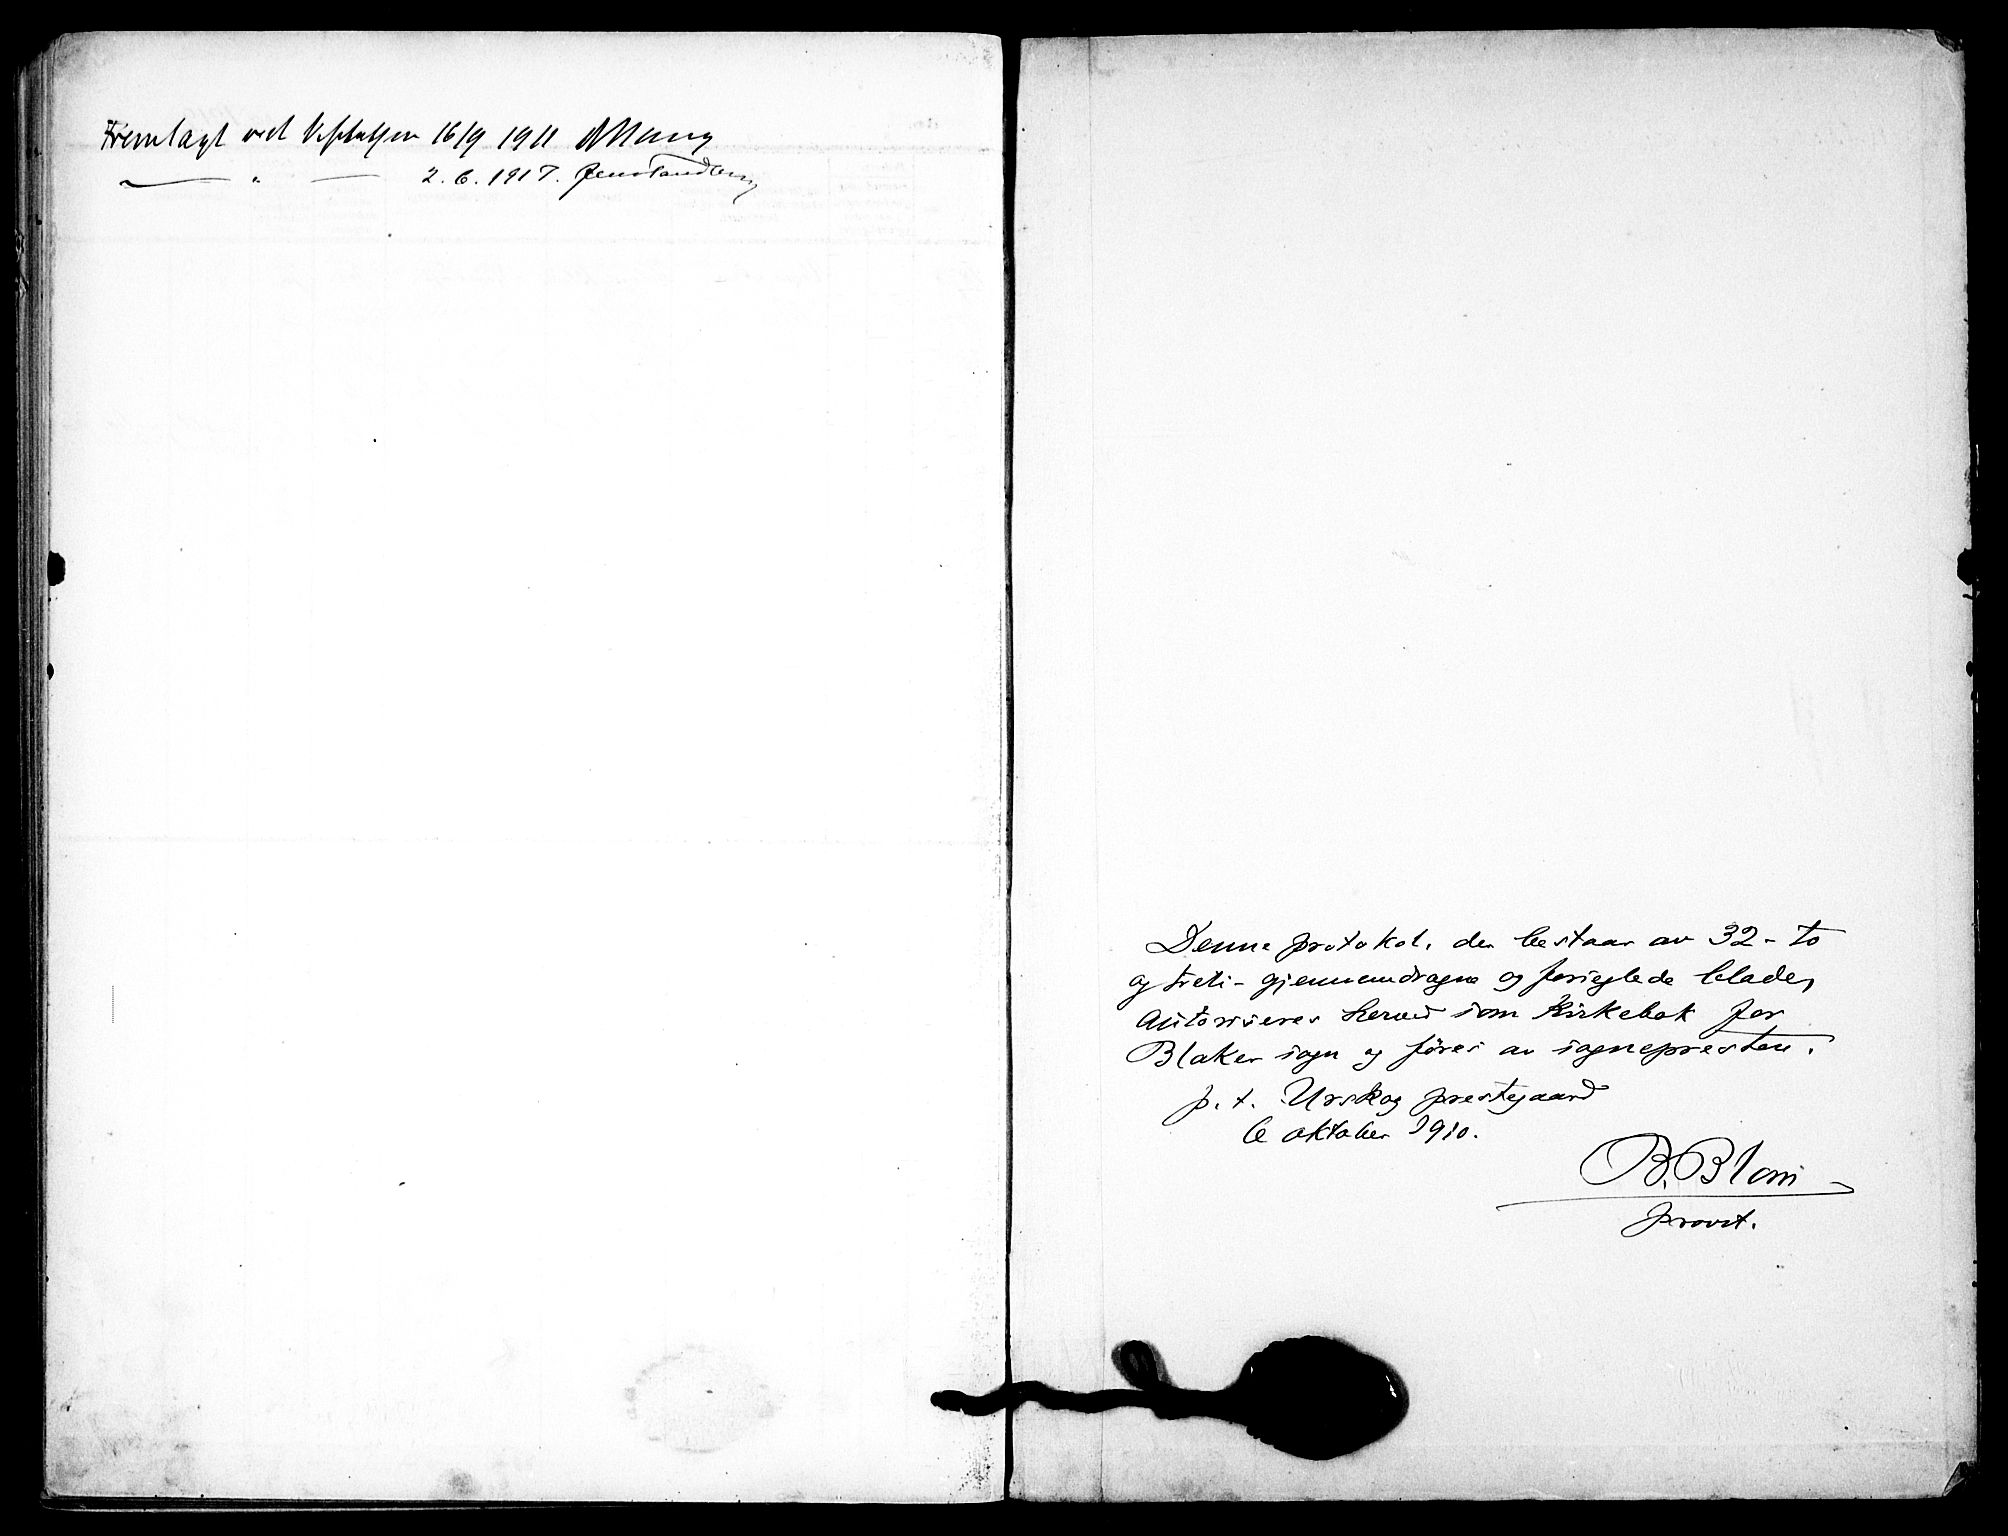 Fremlagt ved Visitatsen 16/9 1911
" 2. 6. 1917. Jens Tandberg
Denne protokol, der bestaar av 32 - to
og treti - gjennemdragne og forseglede blade,
autoriseres herved som kirkebok for
Blaker sogn og føres av sognepresten.
p. t. Urskog prestegaard
6 oktober 1910.
B. Blom
provst.